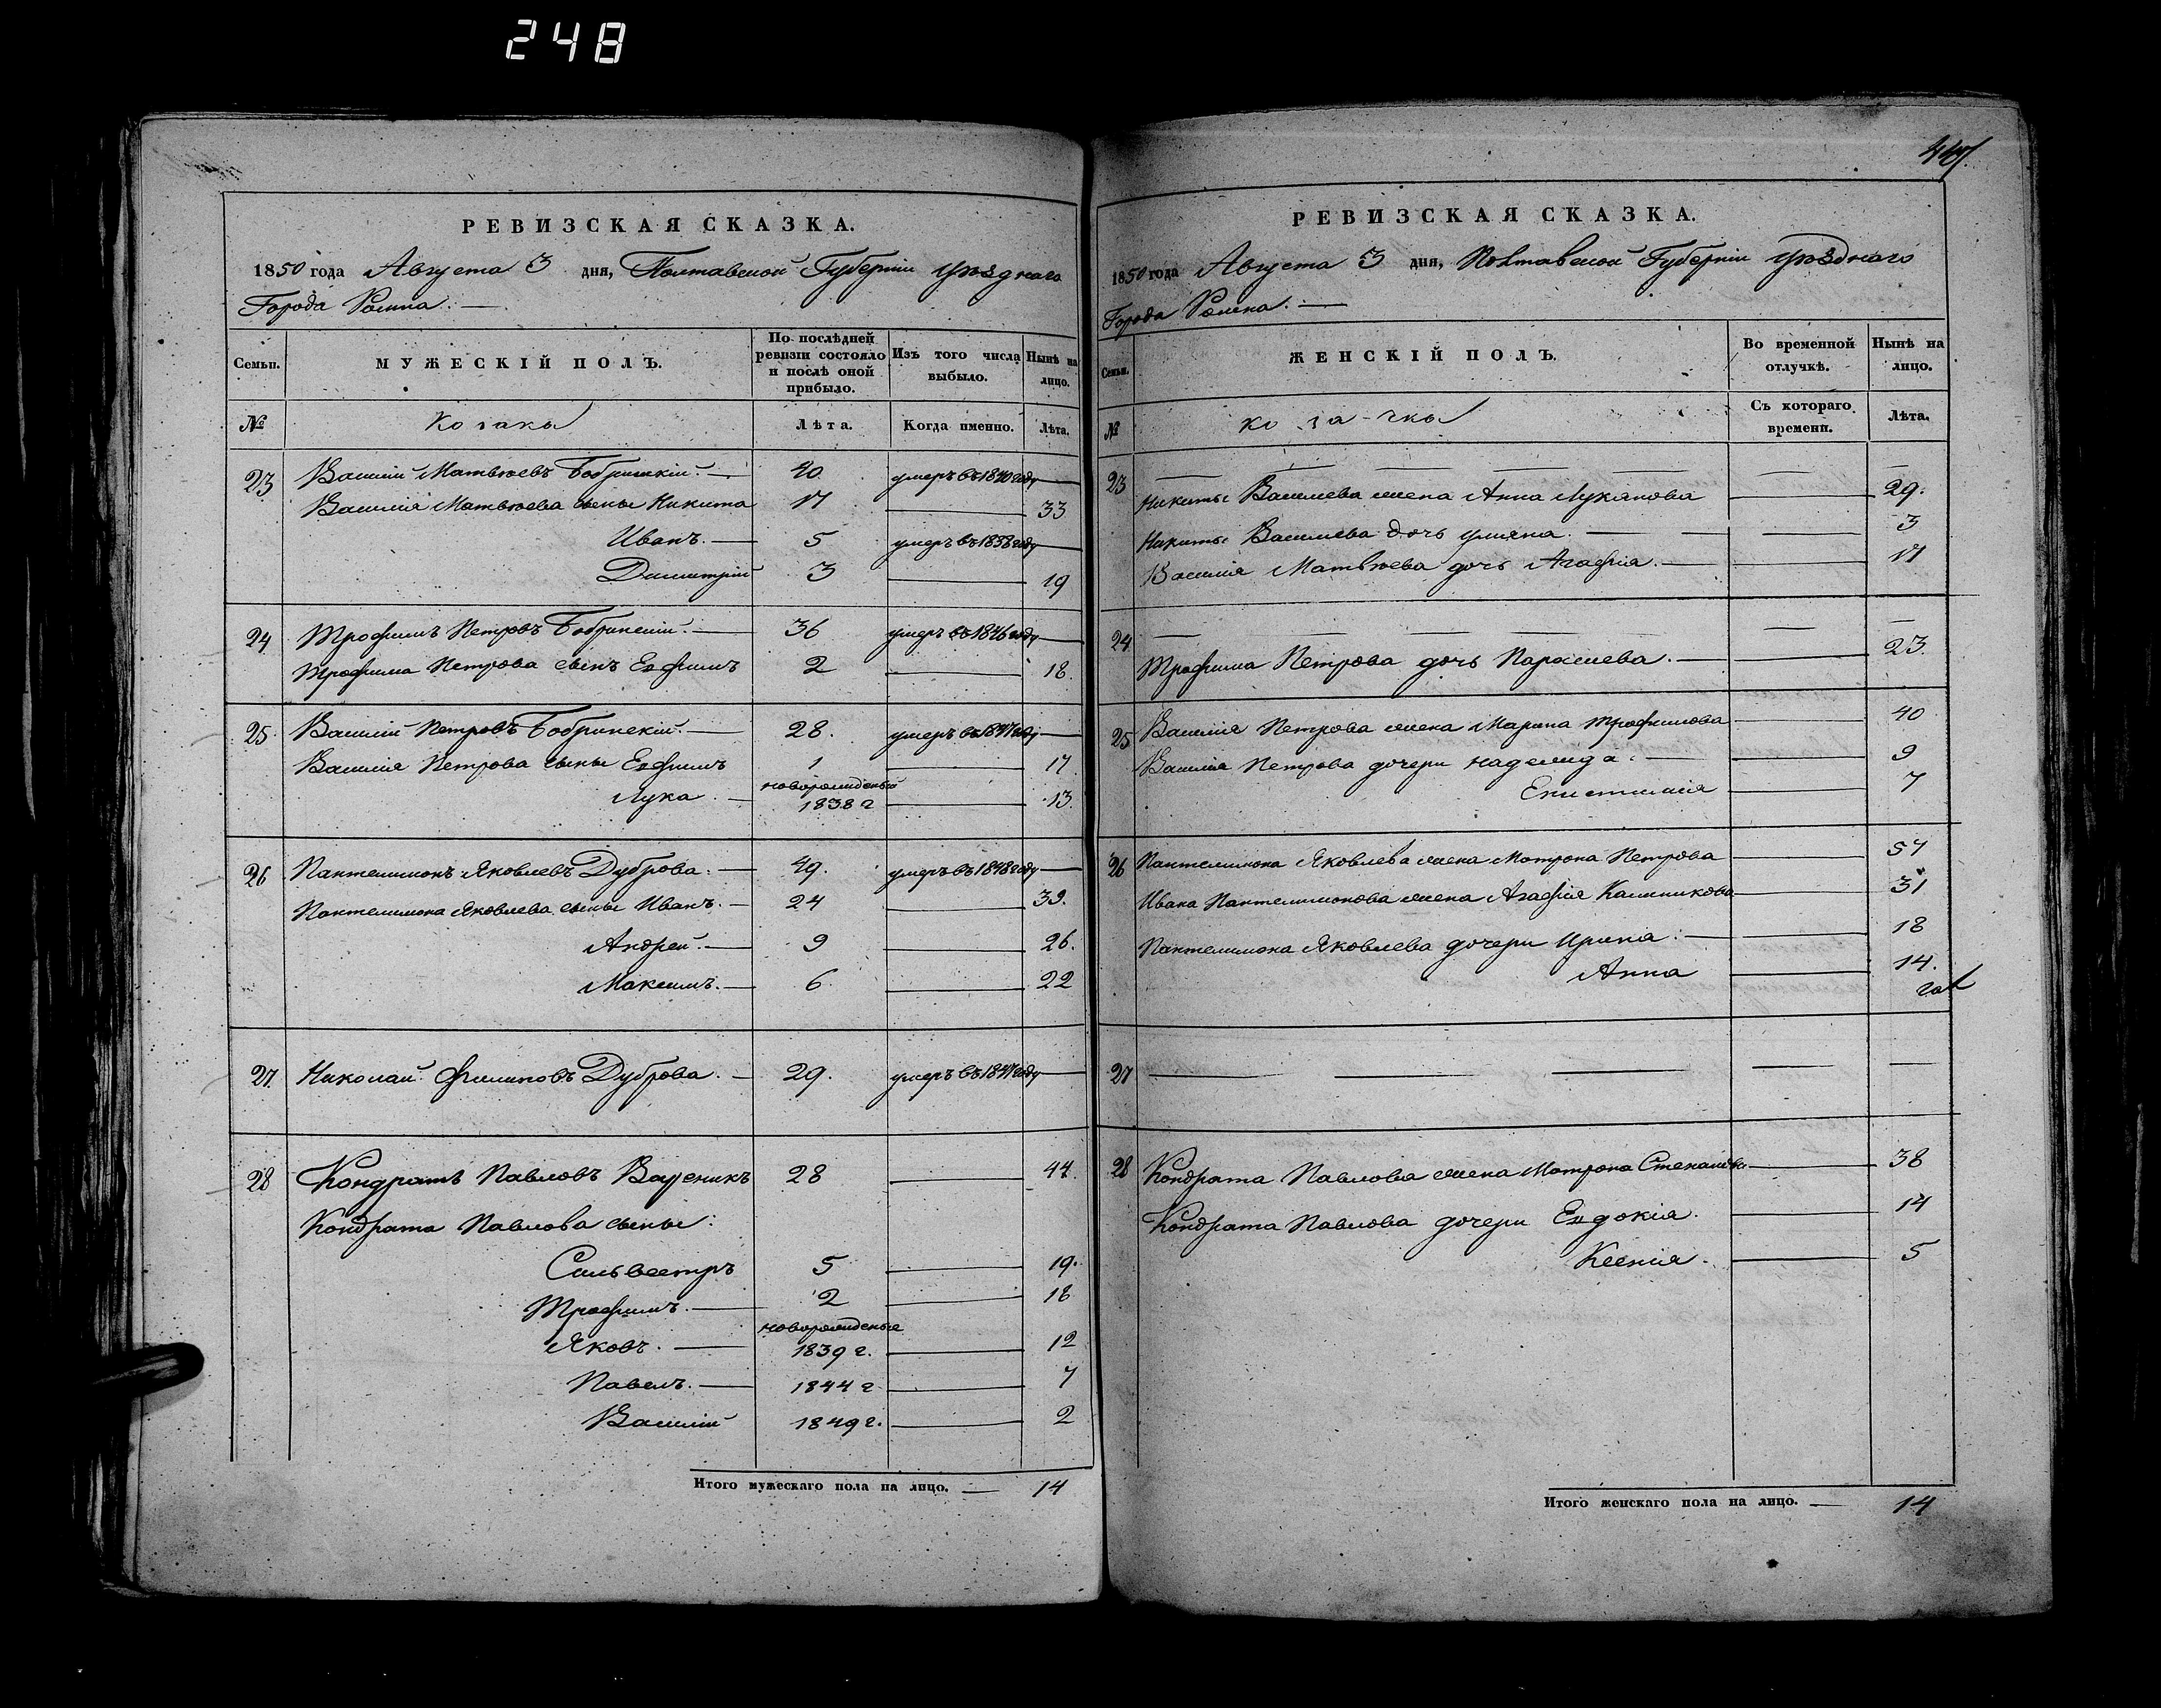 248
РЕВИЗСКАЯ СКАЗКА.
1850 года Августа 3 дня, Полтавской Губерніи уѣзднаго
Города Ромна. —
Семьи. МУЖЕСКІЙ ПОЛЪ. По послѣдней ревизіи состояло и послѣ оной прибыло. Изъ того числа выбыло. Нынѣ на лицо.
№ Козаки Лѣта. Когда именно. Лѣта.
23 Василій Матвѣевъ Бобрицкій. — 40. умеръ въ 1840 году —
Василія Матвѣева сыны Никита 17 — 33
Иванъ. — 5 умеръ въ 1838 году —
Димитрій 3 — 19
24 Трофимъ Петровъ Бобрицкій. — 36 умеръ въ 1846 году —
Трофима Петрова сынъ Евфимъ 2 — 18.
25. Василій Петровъ Бобрицкій. — 28. умеръ въ 1847 году —
Василія Петрова сыны Евфимъ 1 — 17
новорожденый
Лука. — 1838 г — 13.
26 Пантелимонъ Яковлевъ Дуброва. — 49. умеръ въ 1848 году —
Пантелимона Яковлева сыны Иванъ. — 24 — 39.
Андрей. — 9 — 26.
Максимъ. — 6. — 22
27. Николай Филиповъ Дуброва. — 29. умеръ въ 1847 году —
28 Кондратъ Павловъ Вареникъ 28 — 44.
Кондрата Павлова сыны:
Сильвестръ 5 — 19.
Трофимъ. — 2 — 18
новорожденые
Яковъ. — 1839 г. — 12
Павелъ. — 1844 г — 7
Василій 1849 г. — 2
Итого мужескаго пола на лицо. — 14
РЕВИЗСКАЯ СКАЗКА.
1850 года Августа 3 дня, Полтавской Губерніи уѣзднаго
Города Ромна. —
Семьи. ЖЕНСКІЙ ПОЛЪ. Во временной отлучкѣ. Нынѣ на лицо.
№ козачки Съ котораго времени. Лѣта.
23 — — — — — —
Никиты Васильева жена Анна Лукянова — 29.
Никиты Васильева дочь Улияна. — — 3
Василія Матвѣева дочь Агафія. — — 17
24 — — — — — —
Трофима Петрова дочь Параскева. — — 23.
25 Василія Петрова жена Марина Трофимова — 40
Василія Петрова дочери Надежда. — — 9
Екистимія — 7
26 Пантелимона Яковлева жена Мотрона Петрова — 57
Ивана Пантелимонова жена Агафія Калиникова — 31
Пантелимона Яковлева дочери Ирина. — — 18
Анна — 14.
27 — — — — —
28 Кондрата Павлова жена Мотрона Степанова — 38
Кондрата Павлова дочери Евдокія. — 14
Ксенія. — 5
Итого женскаго пола на лицо. — 14